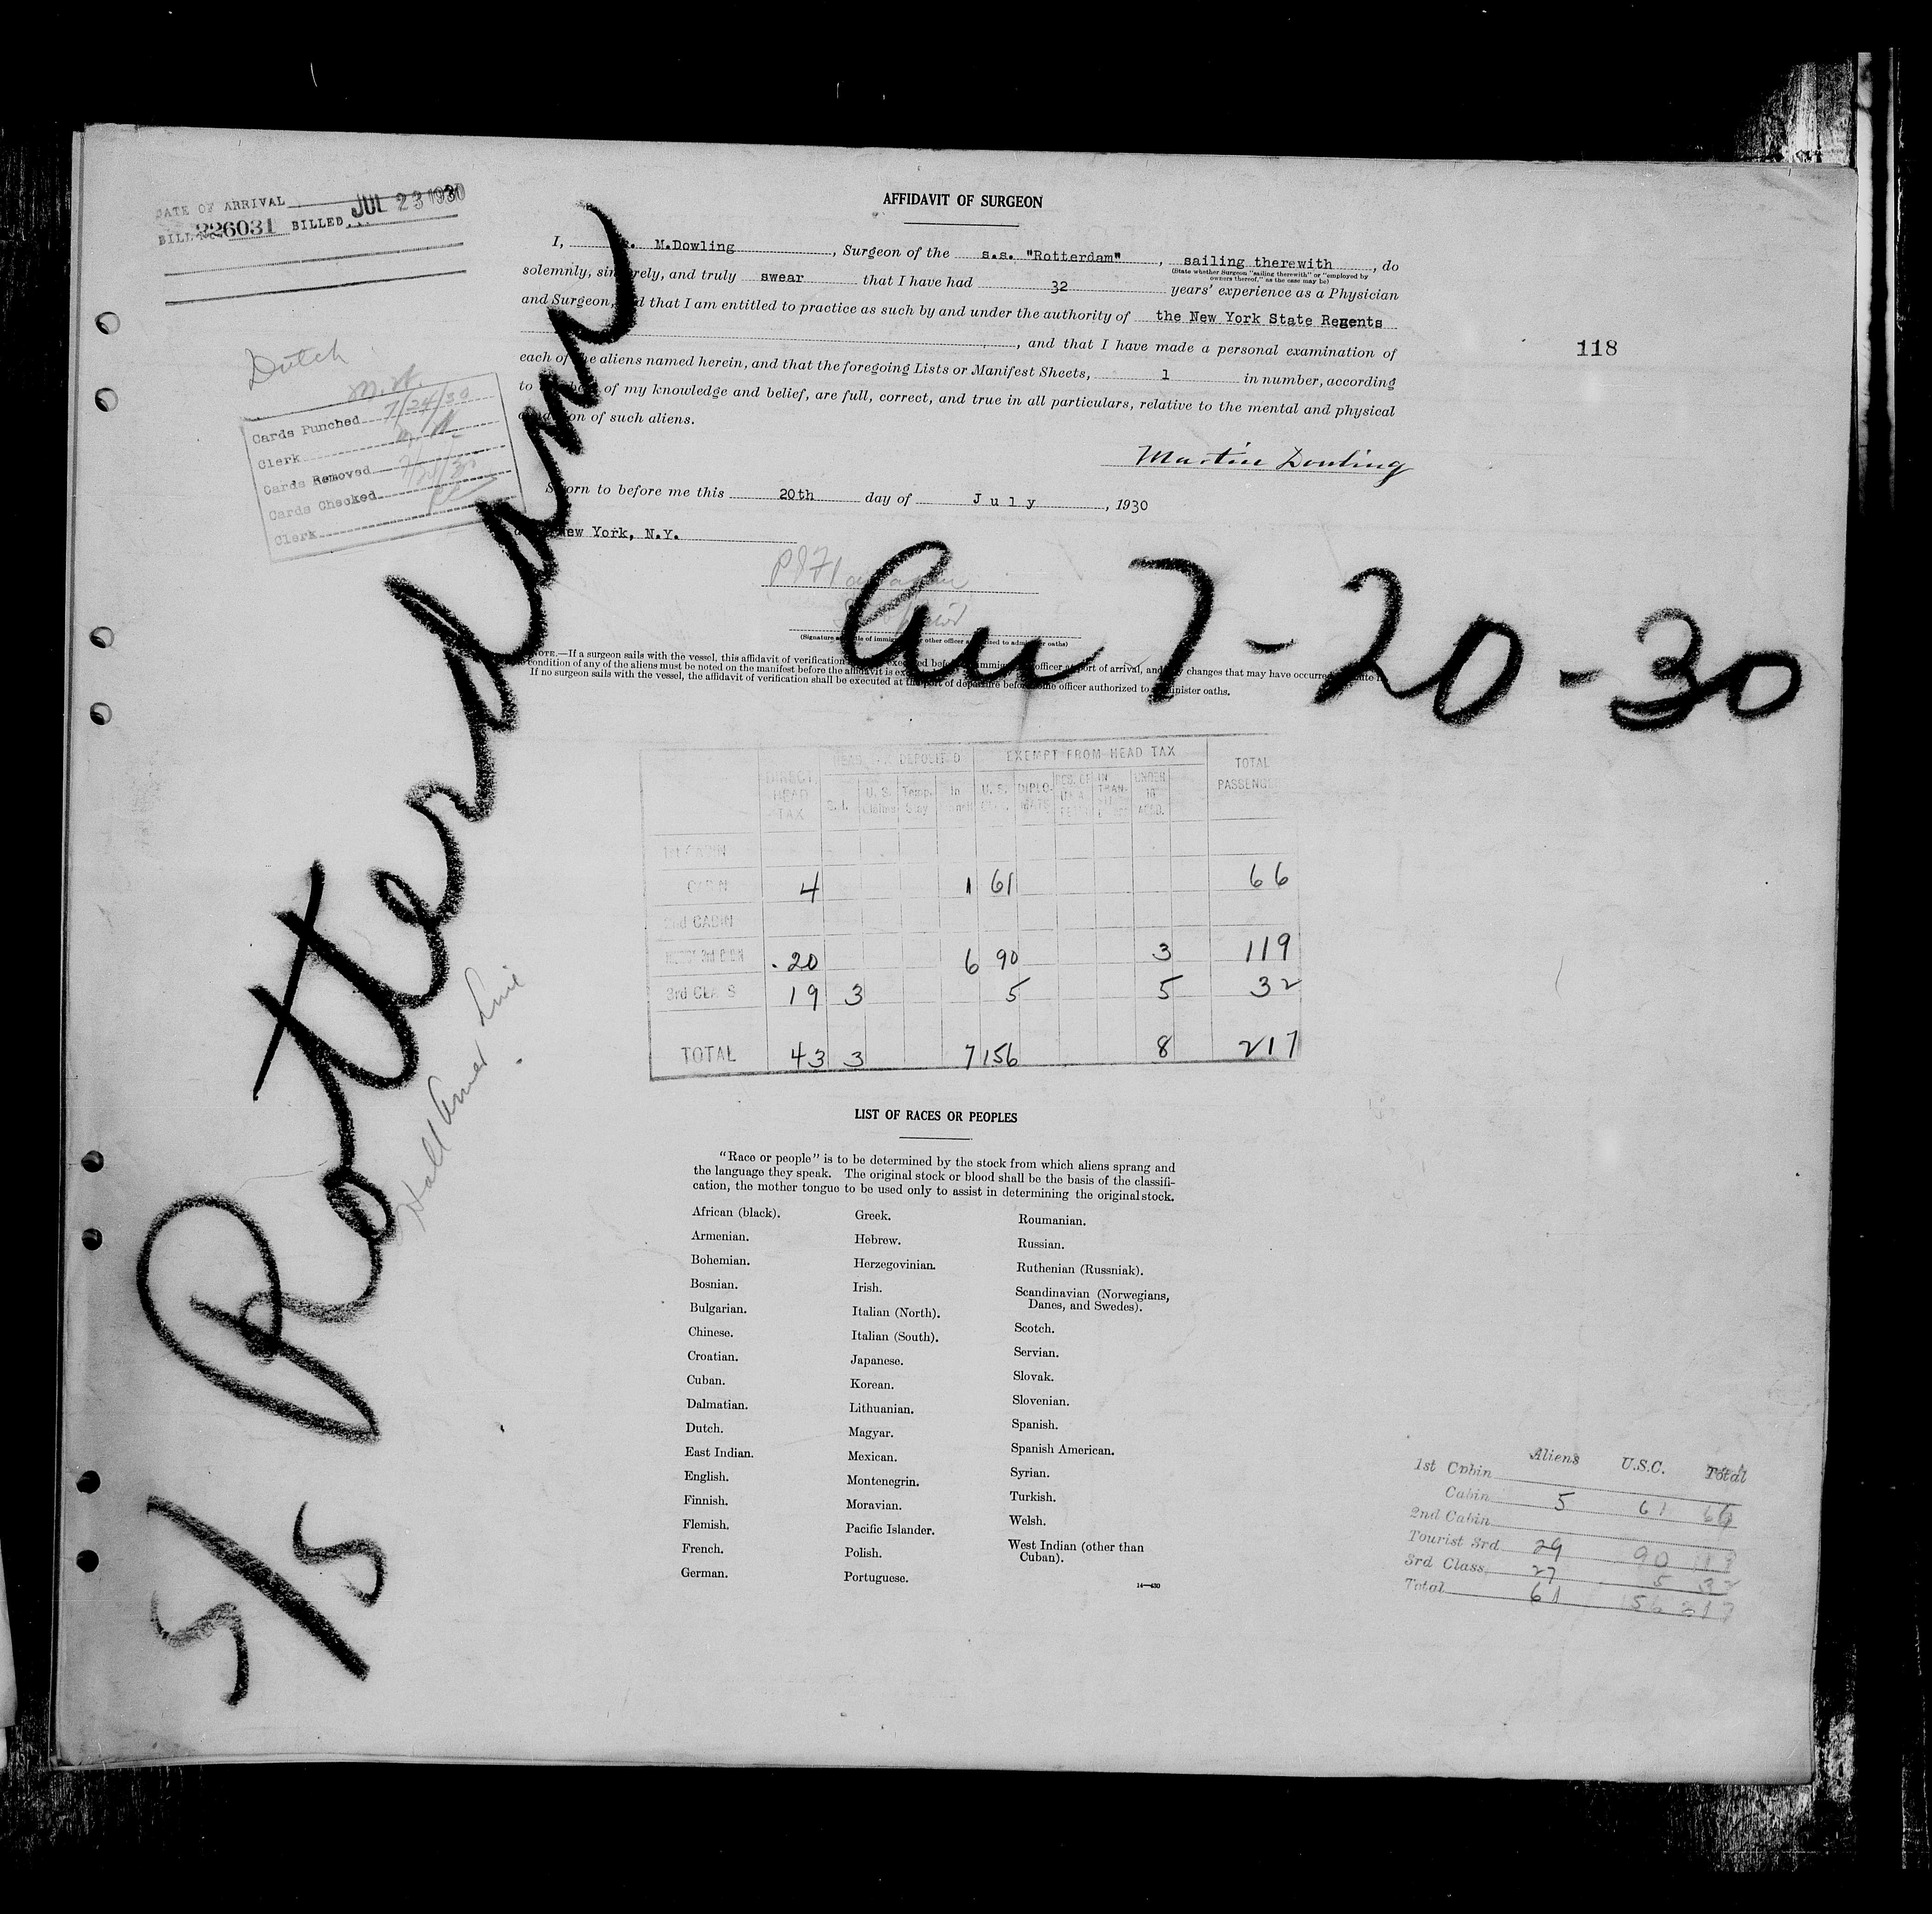 DATE OF ARRIVAL
BILL 226031 BILLED JUL 23 1930
AFFIDAVIT OF SURGEON
I, M.Dowling, Surgeon of the s.s. "Rotterdam", sailing therewith, do
(State whether Surgeon "sailing therewith" or "employed by
owners thereof," as the case may be)
solemnly, sincerely, and truly swear that I have had 32 years' experience as a Physician
and Surgeon, and that I am entitled to practice as such by and under the authority of the New York State Regents
, and that I have made a personal examination of
each of the aliens named herein, and that the foregoing Lists or Manifest Sheets, 1 in number, according
to the best of my knowledge and belief, are full, correct, and true in all particulars, relative to the mental and physical
condition of such aliens.
Martin Dowling
Sworn to before me this 20th day of July, 1930
at New York, N.Y.
(Signature and title of immigrant or other officer authorized to administer oaths)
118
Dutch
M.N.
Cards Punched 7/24/30
Clerk
Cards Removed
Cards Checked
Clerk
Rotterdam
Arr 7-20-30
NOTE.—If a surgeon sails with the vessel, this affidavit of verification executed before immigrant officer at port of arrival, and any changes that may have occurred
condition of any of the aliens must be noted on the manifest before the affidavit is
If no surgeon sails with the vessel, the affidavit of verification shall be executed at the port of departure before some officer authorized to administer oaths.
DIRECT HEAD TAX HEAD TAX DEPOSITED EXEMPT FROM HEAD TAX TOTAL PASSENGE
S.I. U. S. Temp. Stay In U. S. DIPLO-MATS IN TRAN- UNDER 16 ACCD.
1st CABIN
CABIN 4 1 61 66
2nd CABIN
20 6 90 3 119
3rd CLASS 19 3 5 5 32
TOTAL 43 3 7 156 8 217
Line
LIST OF RACES OR PEOPLES
"Race or people" is to be determined by the stock from which aliens sprang and
the language they speak. The original stock or blood shall be the basis of the classifi-
cation, the mother tongue to be used only to assist in determining the original stock.
African (black).
Armenian.
Bohemian.
Bosnian.
Bulgarian.
Chinese.
Croatian.
Cuban.
Dalmatian.
Dutch.
East Indian.
English.
Finnish.
Flemish.
French.
German.
Greek.
Hebrew.
Herzegovinian.
Irish.
Italian (North).
Italian (South).
Japanese.
Korean.
Lithuanian.
Magyar.
Mexican.
Montenegrin.
Moravian.
Pacific Islander.
Polish.
Portuguese.
Roumanian.
Russian.
Ruthenian (Russniak).
Scandinavian (Norwegians,
Danes, and Swedes).
Scotch.
Servian.
Slovak.
Slovenian.
Spanish.
Spanish American.
Syrian.
Turkish.
Welsh.
West Indian (other than
Cuban).
14—430
Aliens U.S.C. Total
1st Cabin
Cabin 5 61 66
2nd Cabin
Tourist 3rd 29 90 119
3rd Class 27 5 32
Total 61 156 217
5/5